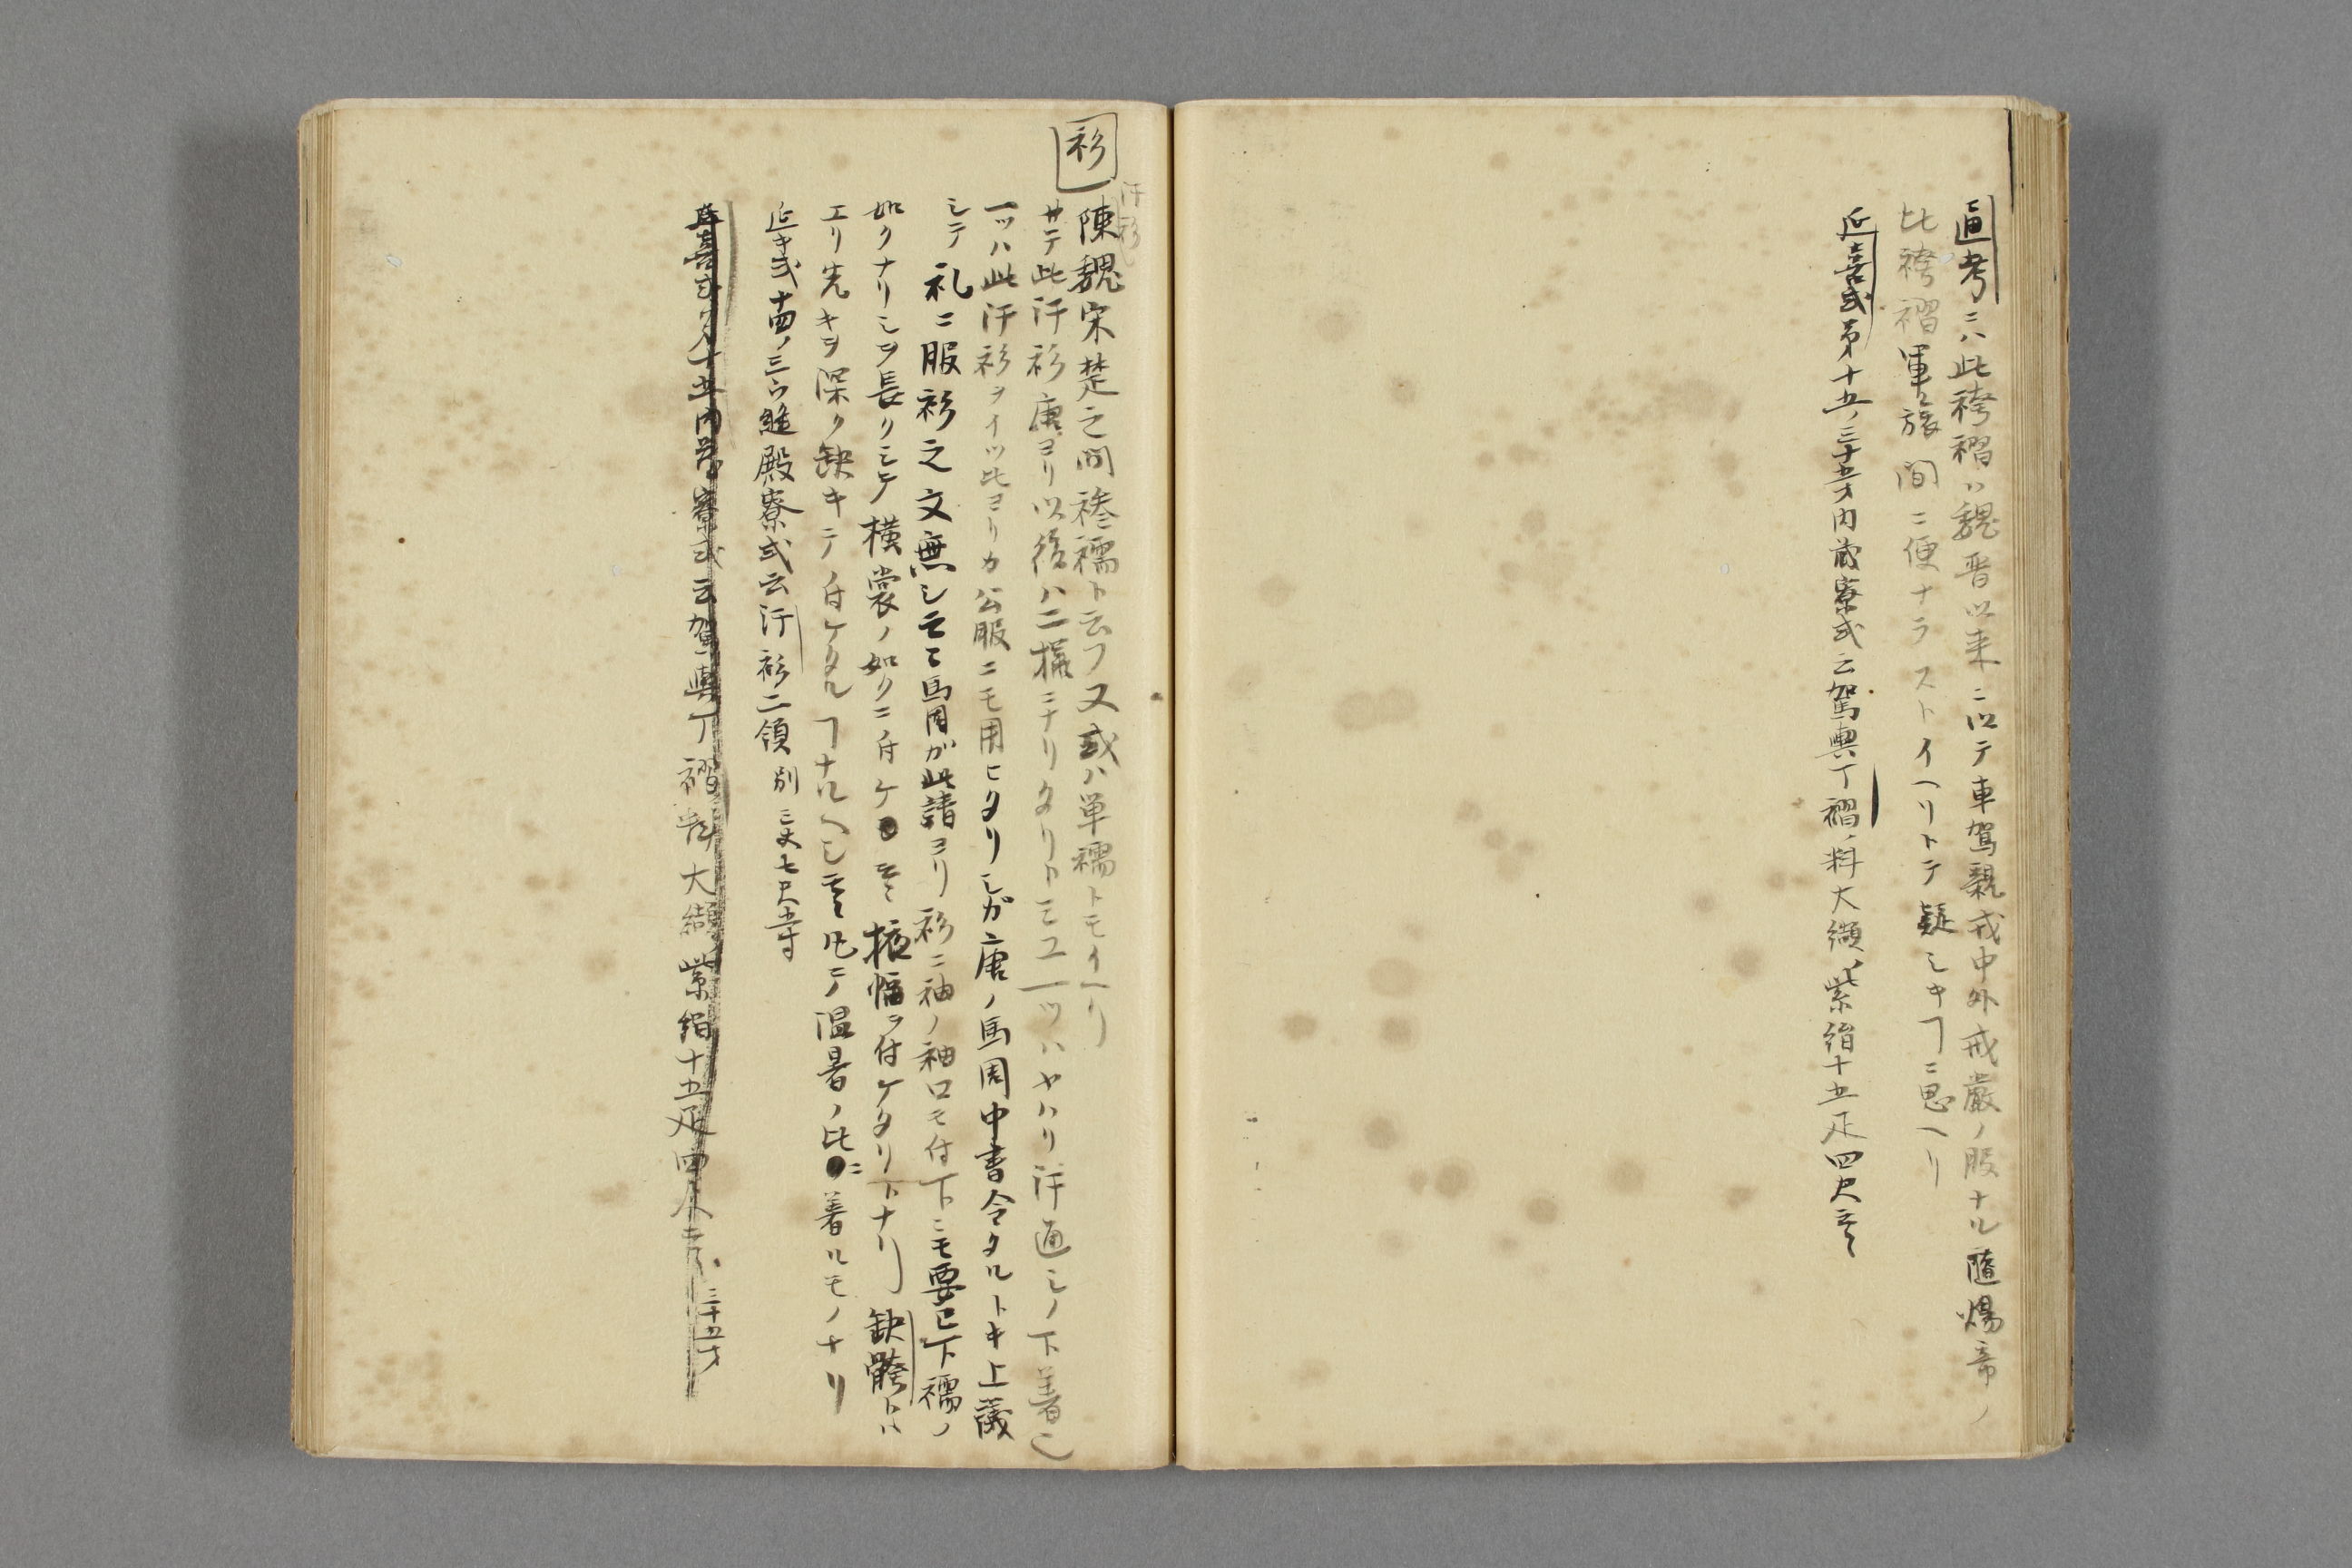 通考ニハ此袴褶ハ魏晋以来ニ以テ車駕親戎中外戒厳ノ服ナル隨煬帝ノ
比袴褶軍旅間ニ便ナラストイヘリトテ疑シキヿニ思ヘリ
延喜式第十五ノ三十五才内蔵寮式云駕輿丁褶ノ料大纈ノ紫絹十五疋四尺云々
衫
汗衫
陳魏宋楚之間襂襦ト云フ又或ハ単襦トモイヘリ
サテ此汗衫唐ヨリ以後ハ二様ニナリタリト見ユ一ツハヤハリ汗通シノ下着也
一ツハ此汗衫ヲイツ比ヨリカ公服ニモ用ヒタリシガ唐ノ馬周中書令タルトキ上議
シテ礼ニ服衫之文無シ云々馬周が此請ヨリ衫ニ袖ノ袖口モ付下ニモ要已下襦ノ
如クナリシヲ長クシテ横裳ノ如クニ付ケ云々掖幅ヲ付ケタリトナリ缺骻トハ
エリ先キヲ深ク缺キテノ付ケタルヿナルヘシ云々凡テ温暑ノ比ニ着ルモノナリ
延キ式十四ノ三ウ縫殿寮式云汗衫二領別三丈七尺五寸
延喜式第十五内蔵寮式云駕輿丁褶料大纈ノ紫絹十五疋四尺云々三十五才